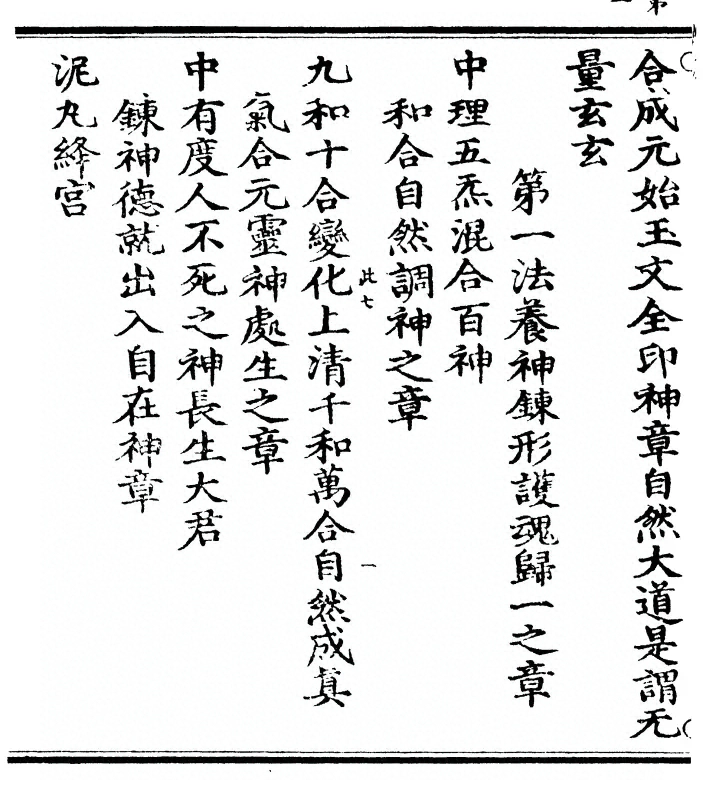 合成元始玉文全印神章自然大道是謂无
量玄玄
第一法養神鍊形護魂歸一之章
中理五炁混合百神
和合自然調神之章
此七
九和十合變化上清千和萬合自然成真
一
氣合元靈神處生之章
中有度人不死之神長生大君
鍊神德就出入自在神章
泥丸絳宮